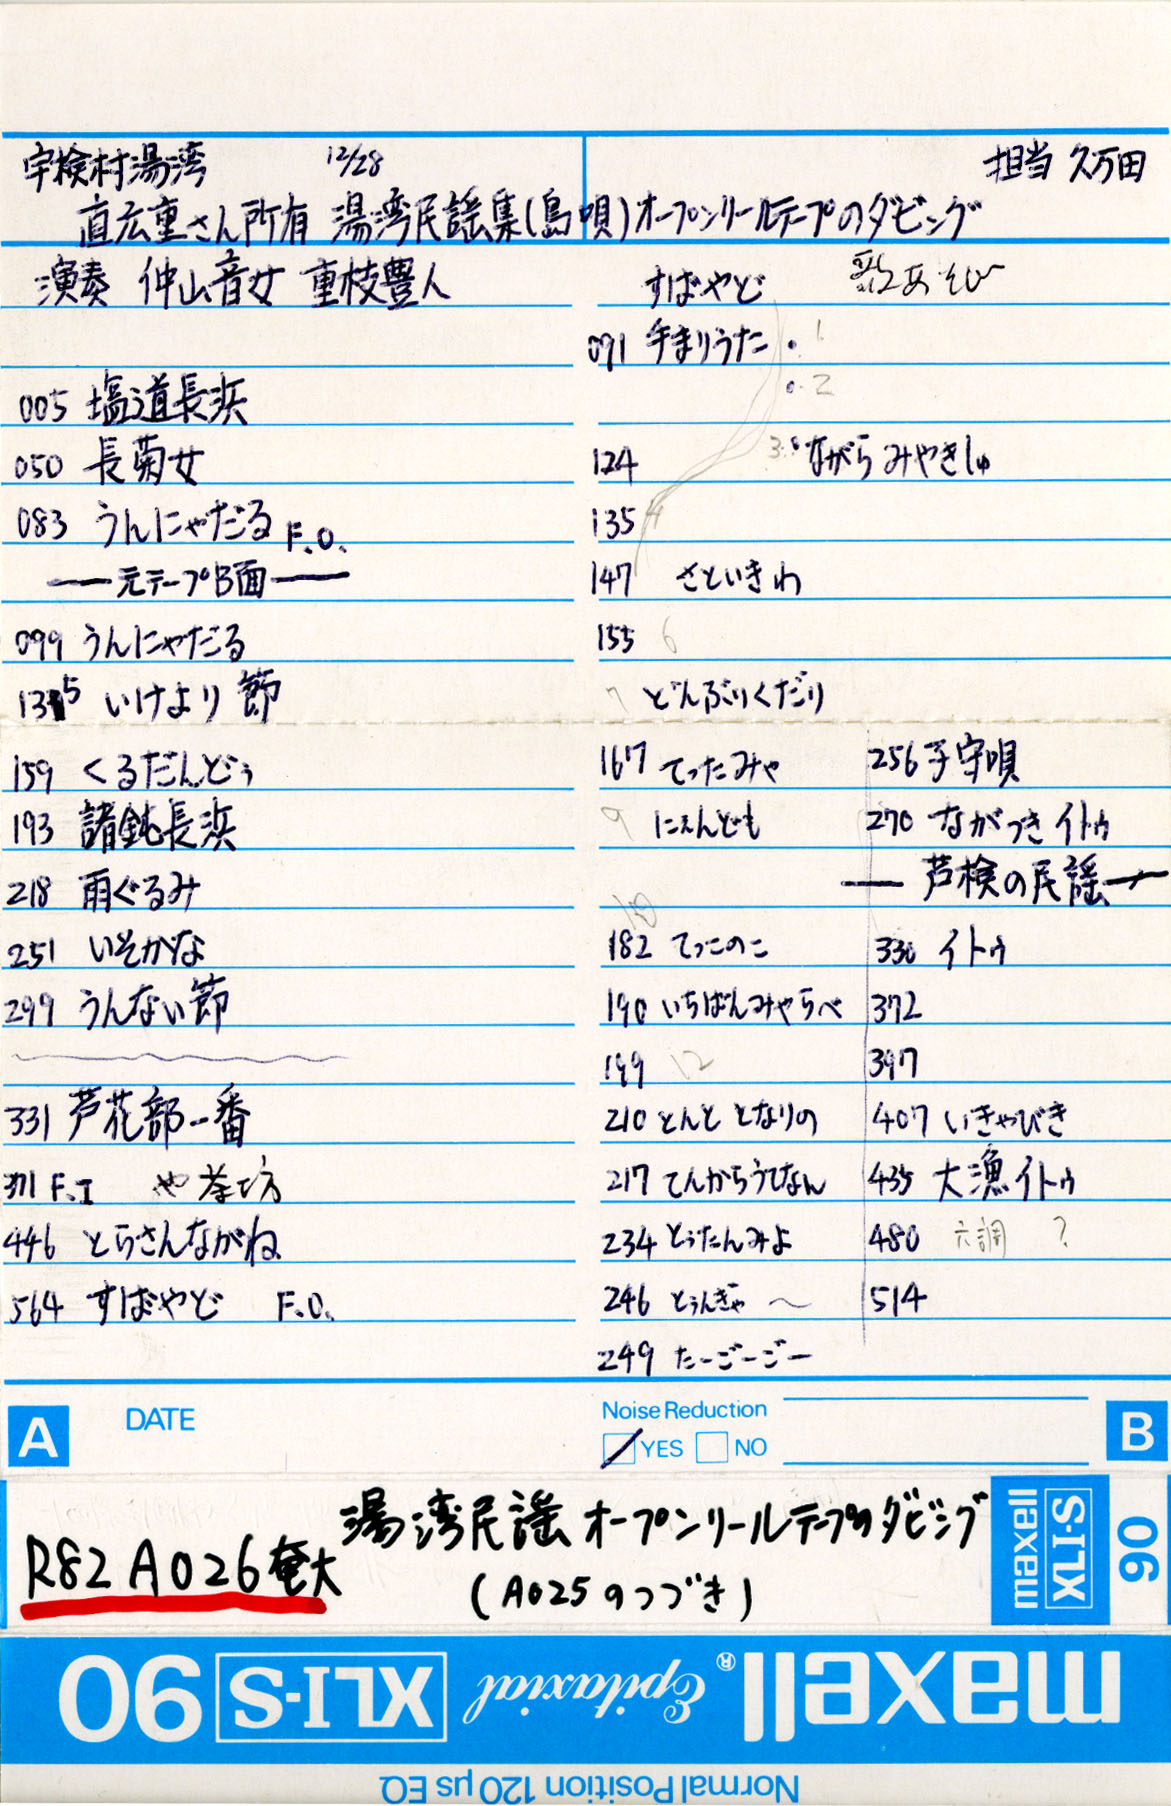 宇検村湯湾 12/28 担当 久万田
直広重さん所有 湯湾民謡集(島唄)オープンリールテープのダビング
演奏 仲山音女 重枝豊人
005 塩道長浜
050 長菊女
083 うんにゃだる F.O.
— 元テープB面 —
099 うんにゃだる
135 いけより節
159 くるだんどぅ
193 諸鈍長浜
218 雨ぐるみ
251 いそかな
299 うんない節
331 芦花部一番
371 F.I や茶坊
446 とらさんながね
564 すばやど F.O.
すばやど 歌あそび
091 手まりうた ・1
・2
124 3.・ながら みやきしゅ
135 4
147 さといきわ
155 6
7 どんぶりくだり
167 てったみゃ
9 にえんども
10
182 てっこのこ
190 いちばんみやらべ
199 12
210 とんと となりの
217 てんからうてなん
234 とぅたんみよ
246 とぅんぎゃ 〜
249 たーごーごー
256 子守唄
270 ながつき イトゥ
— 芦検の民謡 —
330 イトゥ
372
397
407 いきゃびき
435 大漁イトゥ
480 六調 ?
514
A DATE
Noise Reduction
YES NO
B
湯湾民謡 オープンリールテープのダビング
R82 A026 奄大
(A025のつづき)
maxell
XLI-S
90
maxell® Epitaxial XLI-S 90
Normal Position 120 μs EQ